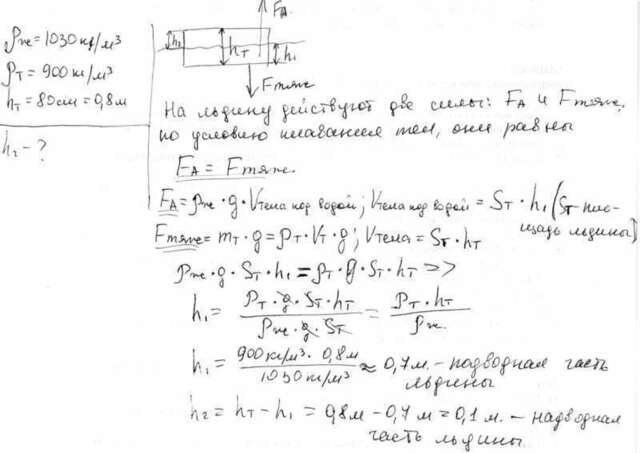 ρж = 1030 кг/м³
ρт = 900 кг/м³
hт = 80см = 0,8м
h₂ - ?
FА
h₂
hт
h₁
Fтяж
На льдину действуют две силы: FА и Fтяж,
по условию плавания тел, они равны
FА = Fтяж.
FА = ρж · g · Vтела под водой; Vтела под водой = Sт · h₁ (Sт пло-
щадь льдины)
Fтяж = mт · g = ρт · Vт · g; Vтела = Sт · hт
ρж · g · Sт · h₁ = ρт · g · Sт · hт =>
h₁ = ρт · g · Sт · hт / ρж · g · Sт = ρт · hт / ρж.
h₁ = 900 кг/м³ · 0,8м / 1030 кг/м³ ≈ 0,7 м. - подводная часть
льдины
h₂ = hт - h₁ = 0,8м - 0,7 м = 0,1 м. - надводная
часть льдины.